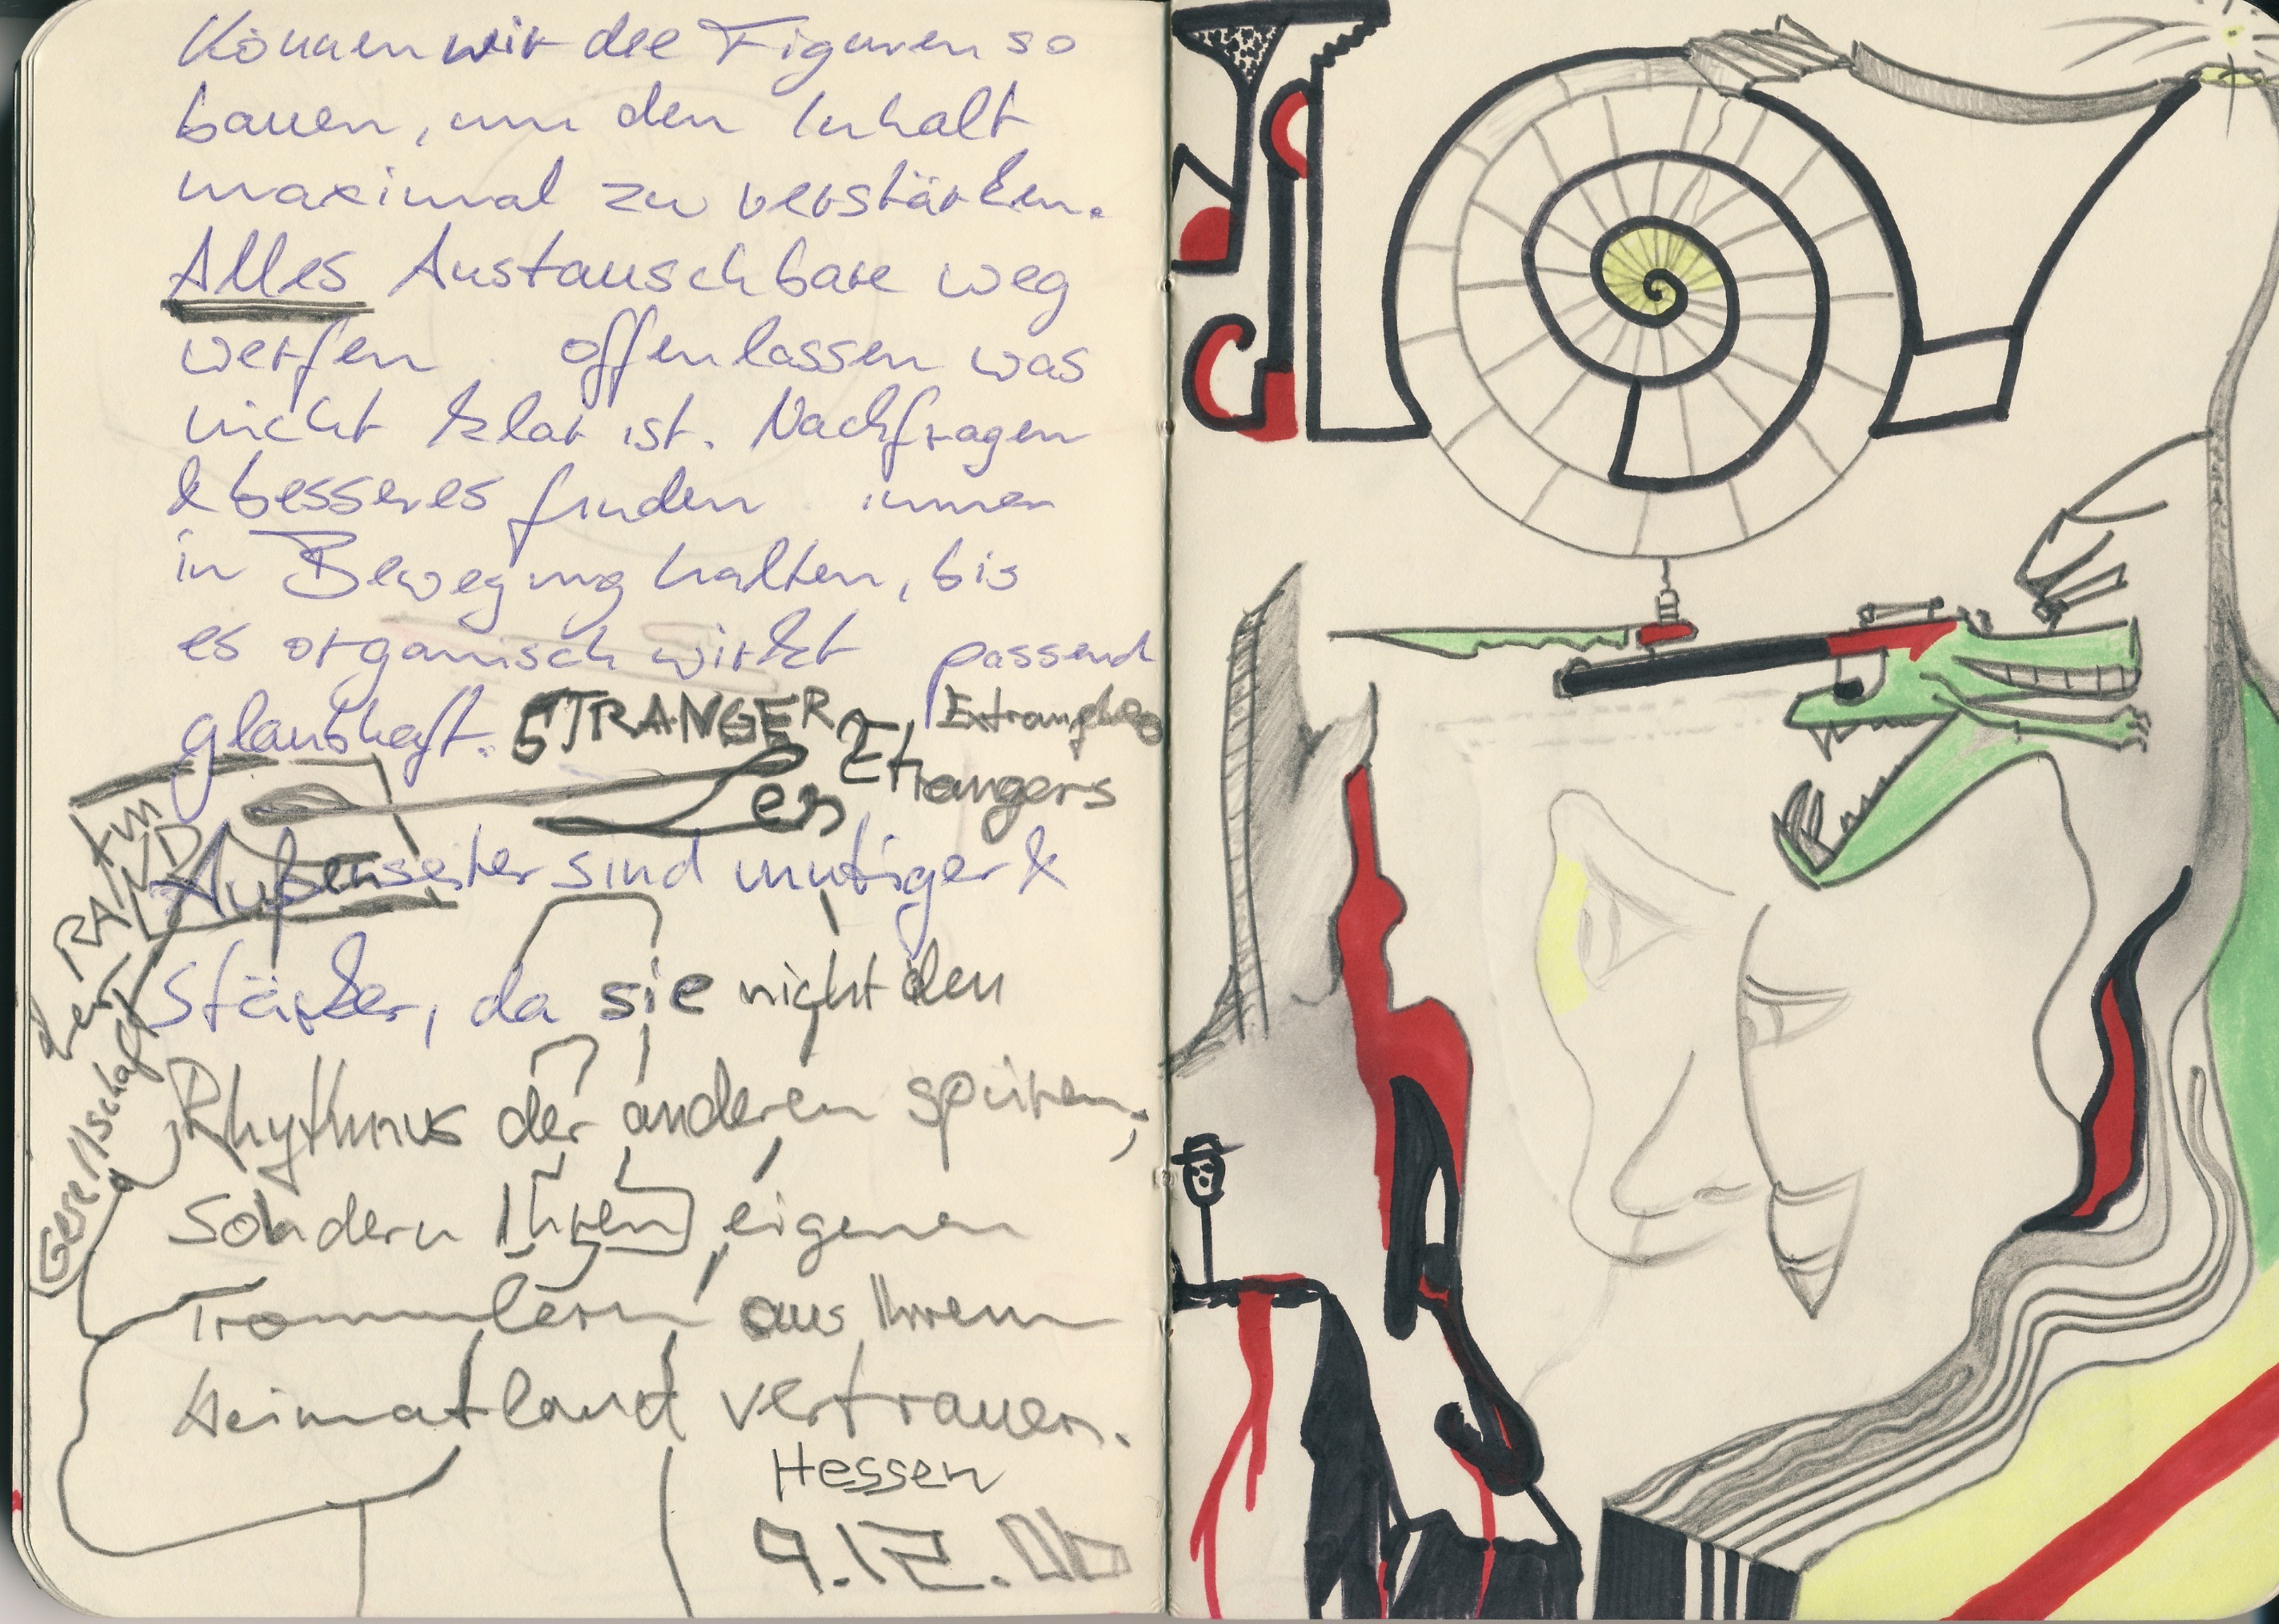 Können wir die Figuren so
bauen, um den Inhalt
maximal zu verstärken.
Alles Austauschbare weg
werfen. offenlassen was
nicht klar ist. Nachfragen
& besseres finden. immer
in Bewegung halten, bis
es organisch wirkt passend
glaubhaft. STRANGER
Etrangers
Am
RAND
der
Gesellschaft
Außenseiter sind mutiger &
Stärker, da sie nicht den
Rhythmus der anderen spüren,
Sondern Ihren eigenen
Trommlern aus Ihrem
Heimatland vertrauen.
Hessen
9.12.